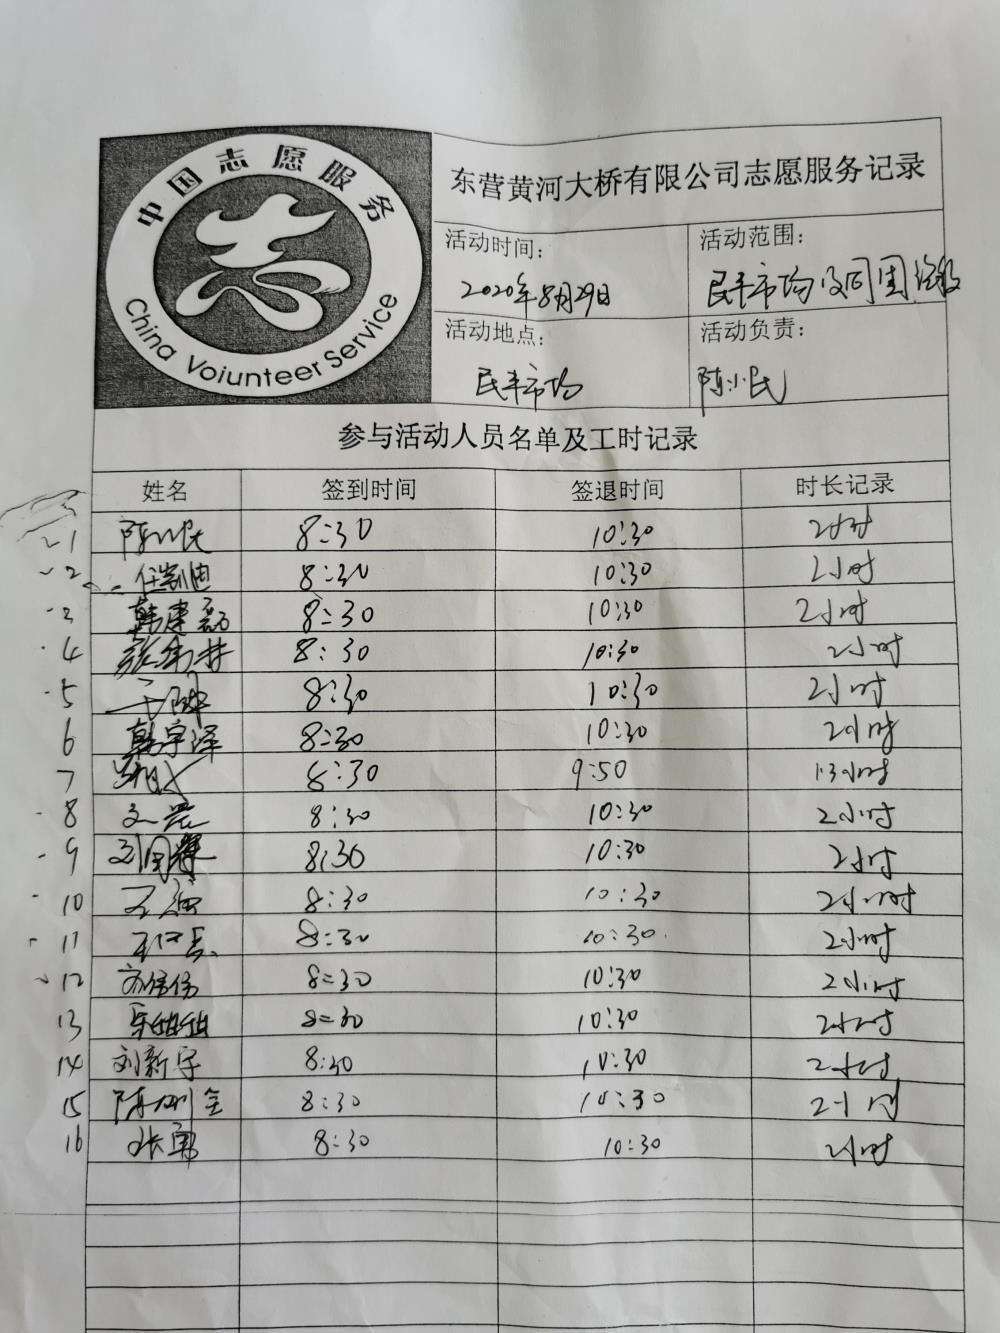 中国志愿服务
China Voiunteer Service
东营黄河大桥有限公司志愿服务记录
活动时间：
2020年8月29日
活动范围：
民丰市场及同围
活动地点：
民丰市场
活动负责：
陈小民
参与活动人员名单及工时记录
姓名 签到时间 签退时间 时长记录
1 陈小民 8:30 10:30 2小时
2 任凯迪 8:30 10:30 2小时
3 韩建磊 8:30 10:30 2小时
4 8:30 10:30 2小时
5 8:30 10:30 2小时
6 韩宇泽 8:30 10:30 2小时
7 8:30 9:50 1.3小时
8 8:30 10:30 2小时
9 8:30 10:30 2小时
10 8:30 10:30 2小时
11 8:30 10:30 2小时
12 8:30 10:30 2小时
13 8:30 10:30 2小时
14 刘新宇 8:30 10:30 2小时
15 8:30 10:30 2小时
16 张勇 8:30 10:30 2小时